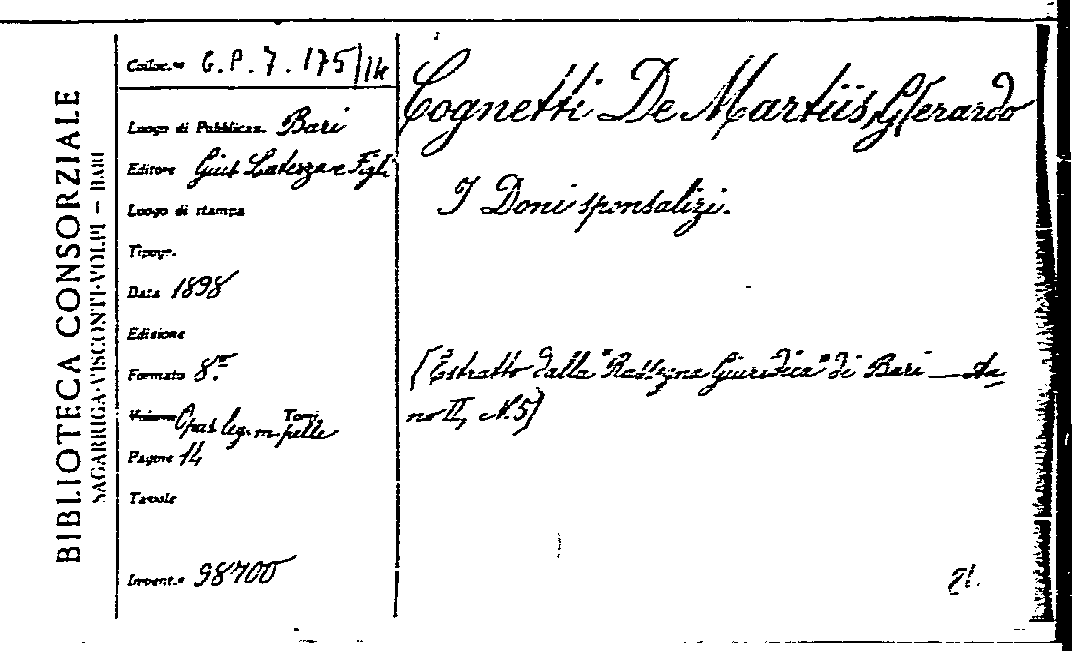 BIBLIOTECA CONSORZIALE
SAGARRIGA-VISCONTI-VOLPI - BARI
Colloc.ne G.P.7.175/14
Luogo di Pubblicaz. Bari
Editore Gius Laterza e Figli
Luogo di stampa
Tipogr.
Data 1898
Edizione
Formato 8.°
Volume Tomi
Opus leg. m. pelle
Pagine 14
Tavole
Invent.° 98700
Cognetti De Martiis, Gerardo
I Doni sponsalizi.
(Estratto dalla "Rassegna Giuridica" di Bari — An-
no II, N. 5)